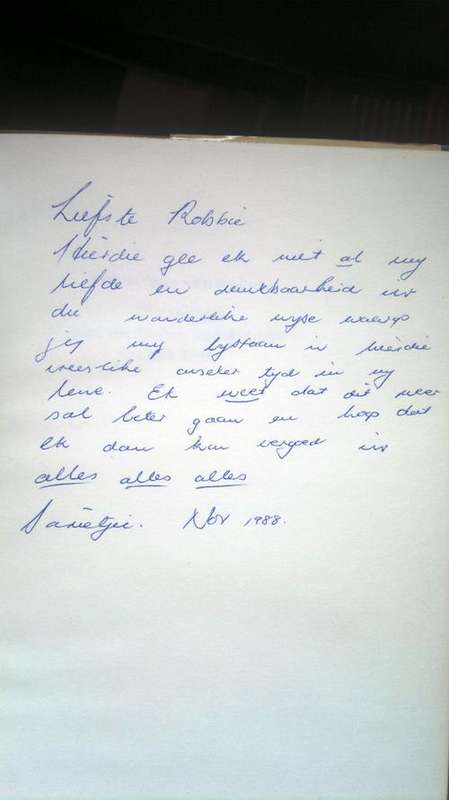 Liefste Robbie
Hierdie gee ek met al my
liefde en dankbaarheid vir
die wonderlike wyse waarop
jy my bystaan in hierdie
vreeslike onseker tyd in my
lewe. Ek weet dat dit weer
sal beter gaan en hoop dat
ek dan kan vergoed vir
alles alles alles
Sarietjie. Nov 1988.